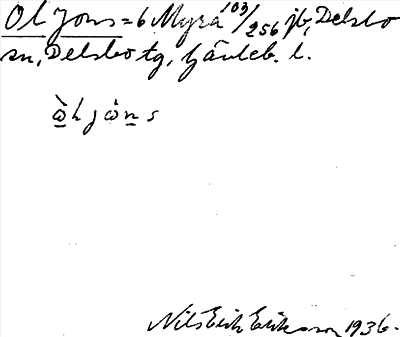 Ol Jons = 6 Myra 103/256 jb, Delsbo
sn, Delsbo tg, Gävleb. l.
ὼhjȯns
Nils Erik Eriksson 1936.